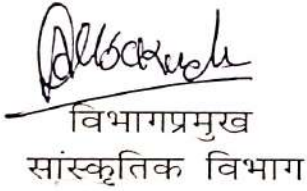 विभागप्रमुख
सांस्कृतिक विभाग